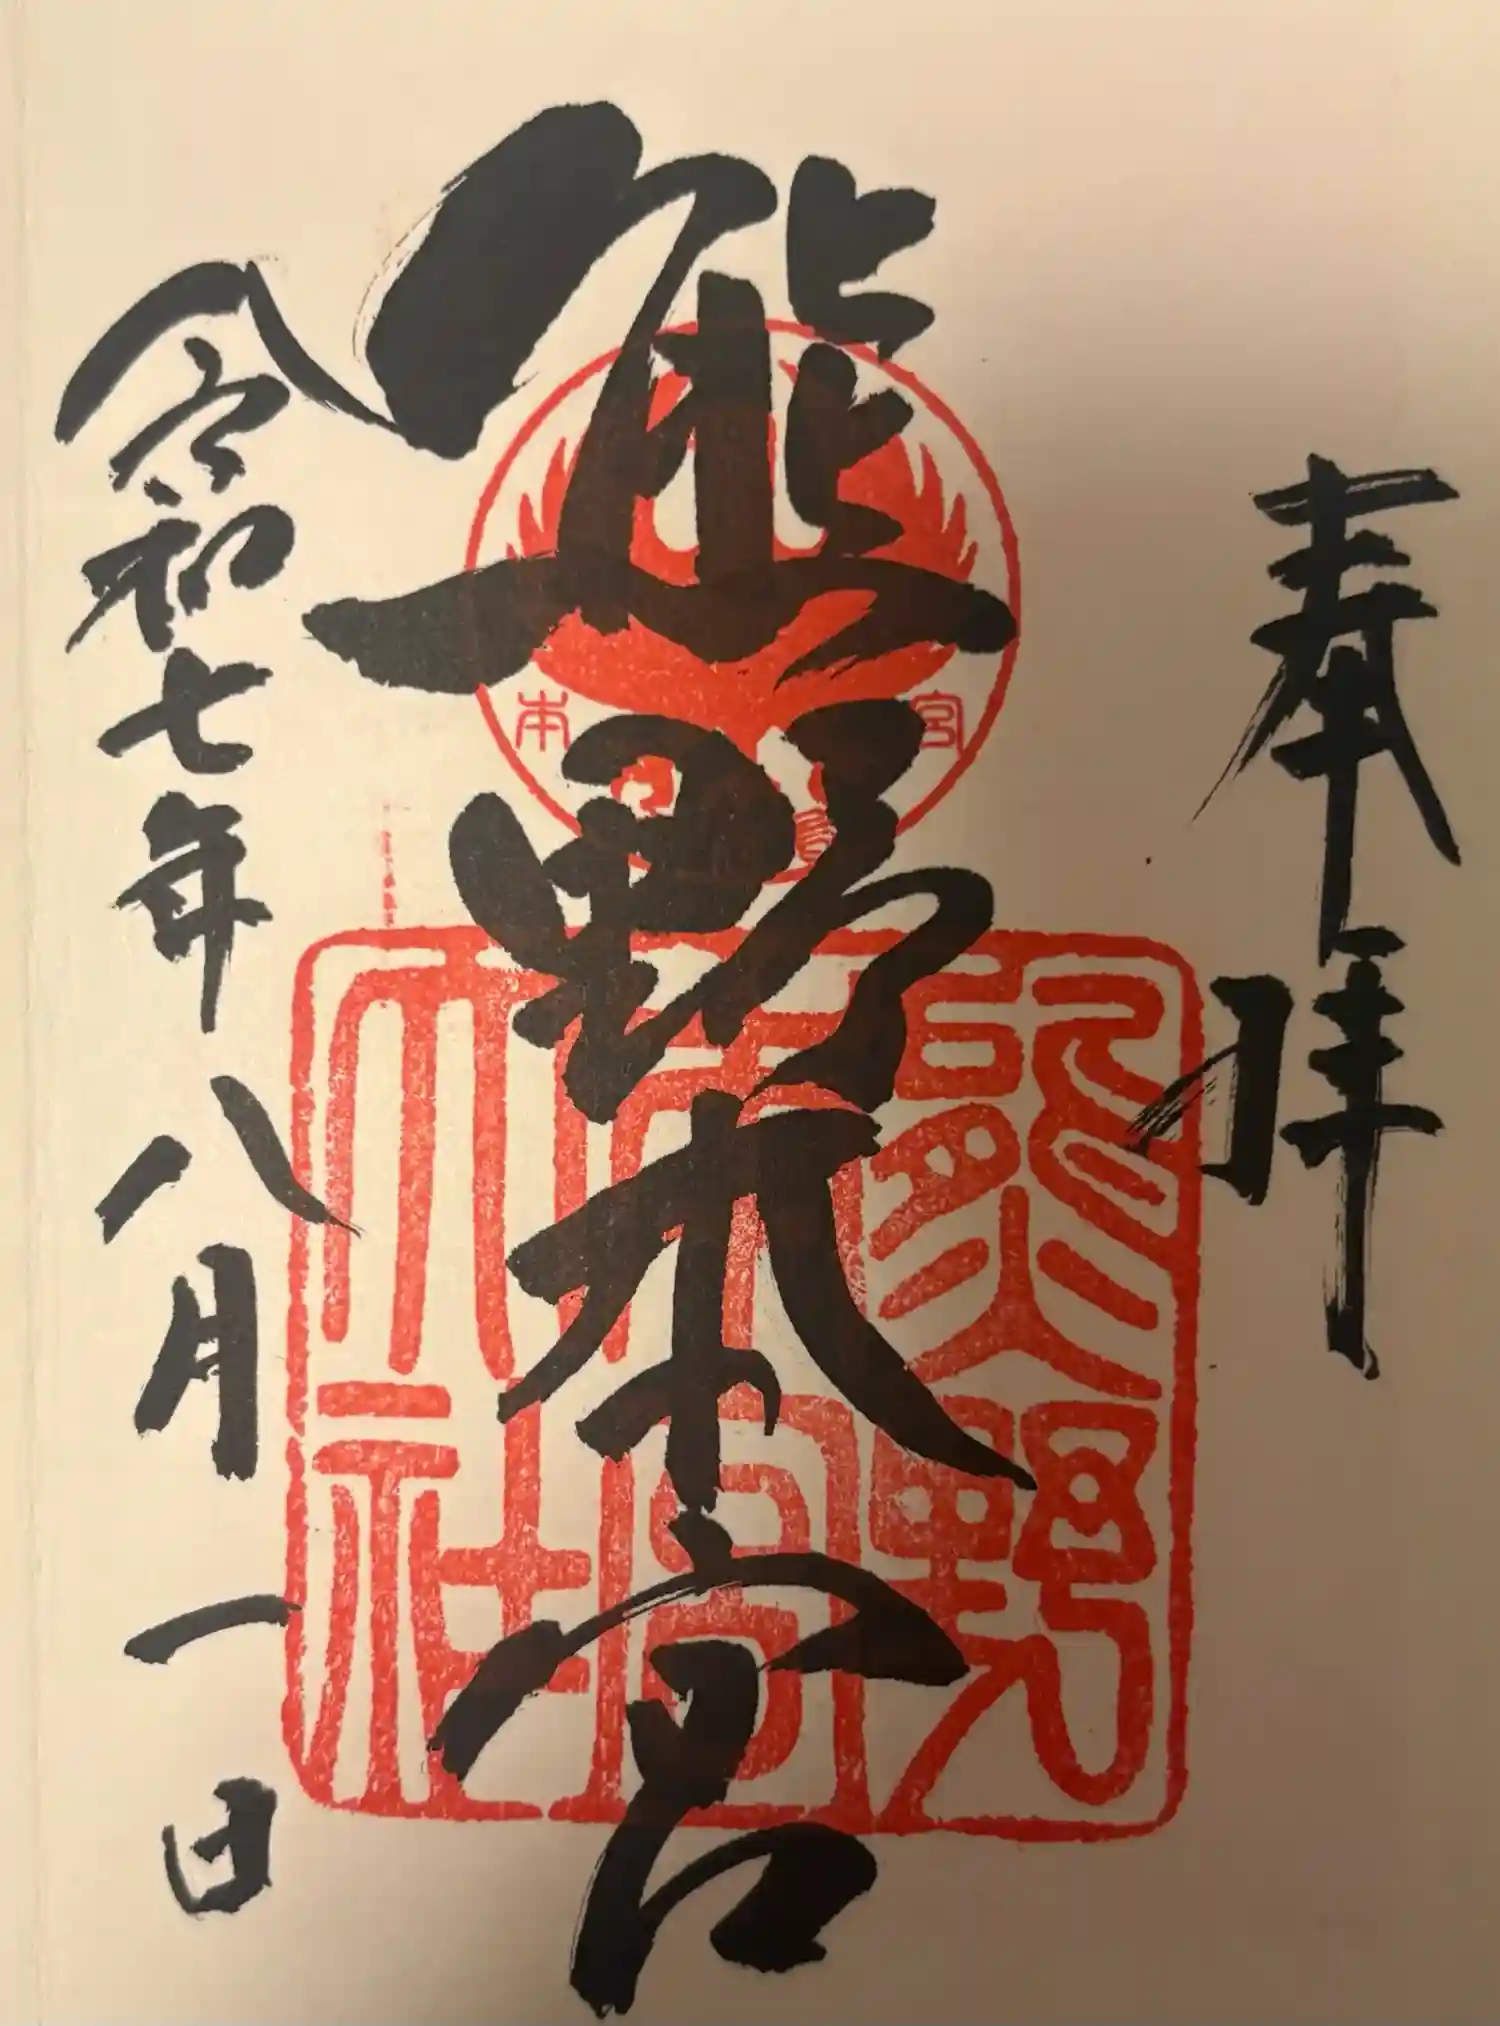 奉拝
熊野本宮
本 宮
熊野本宮大社
令和七年八月一日